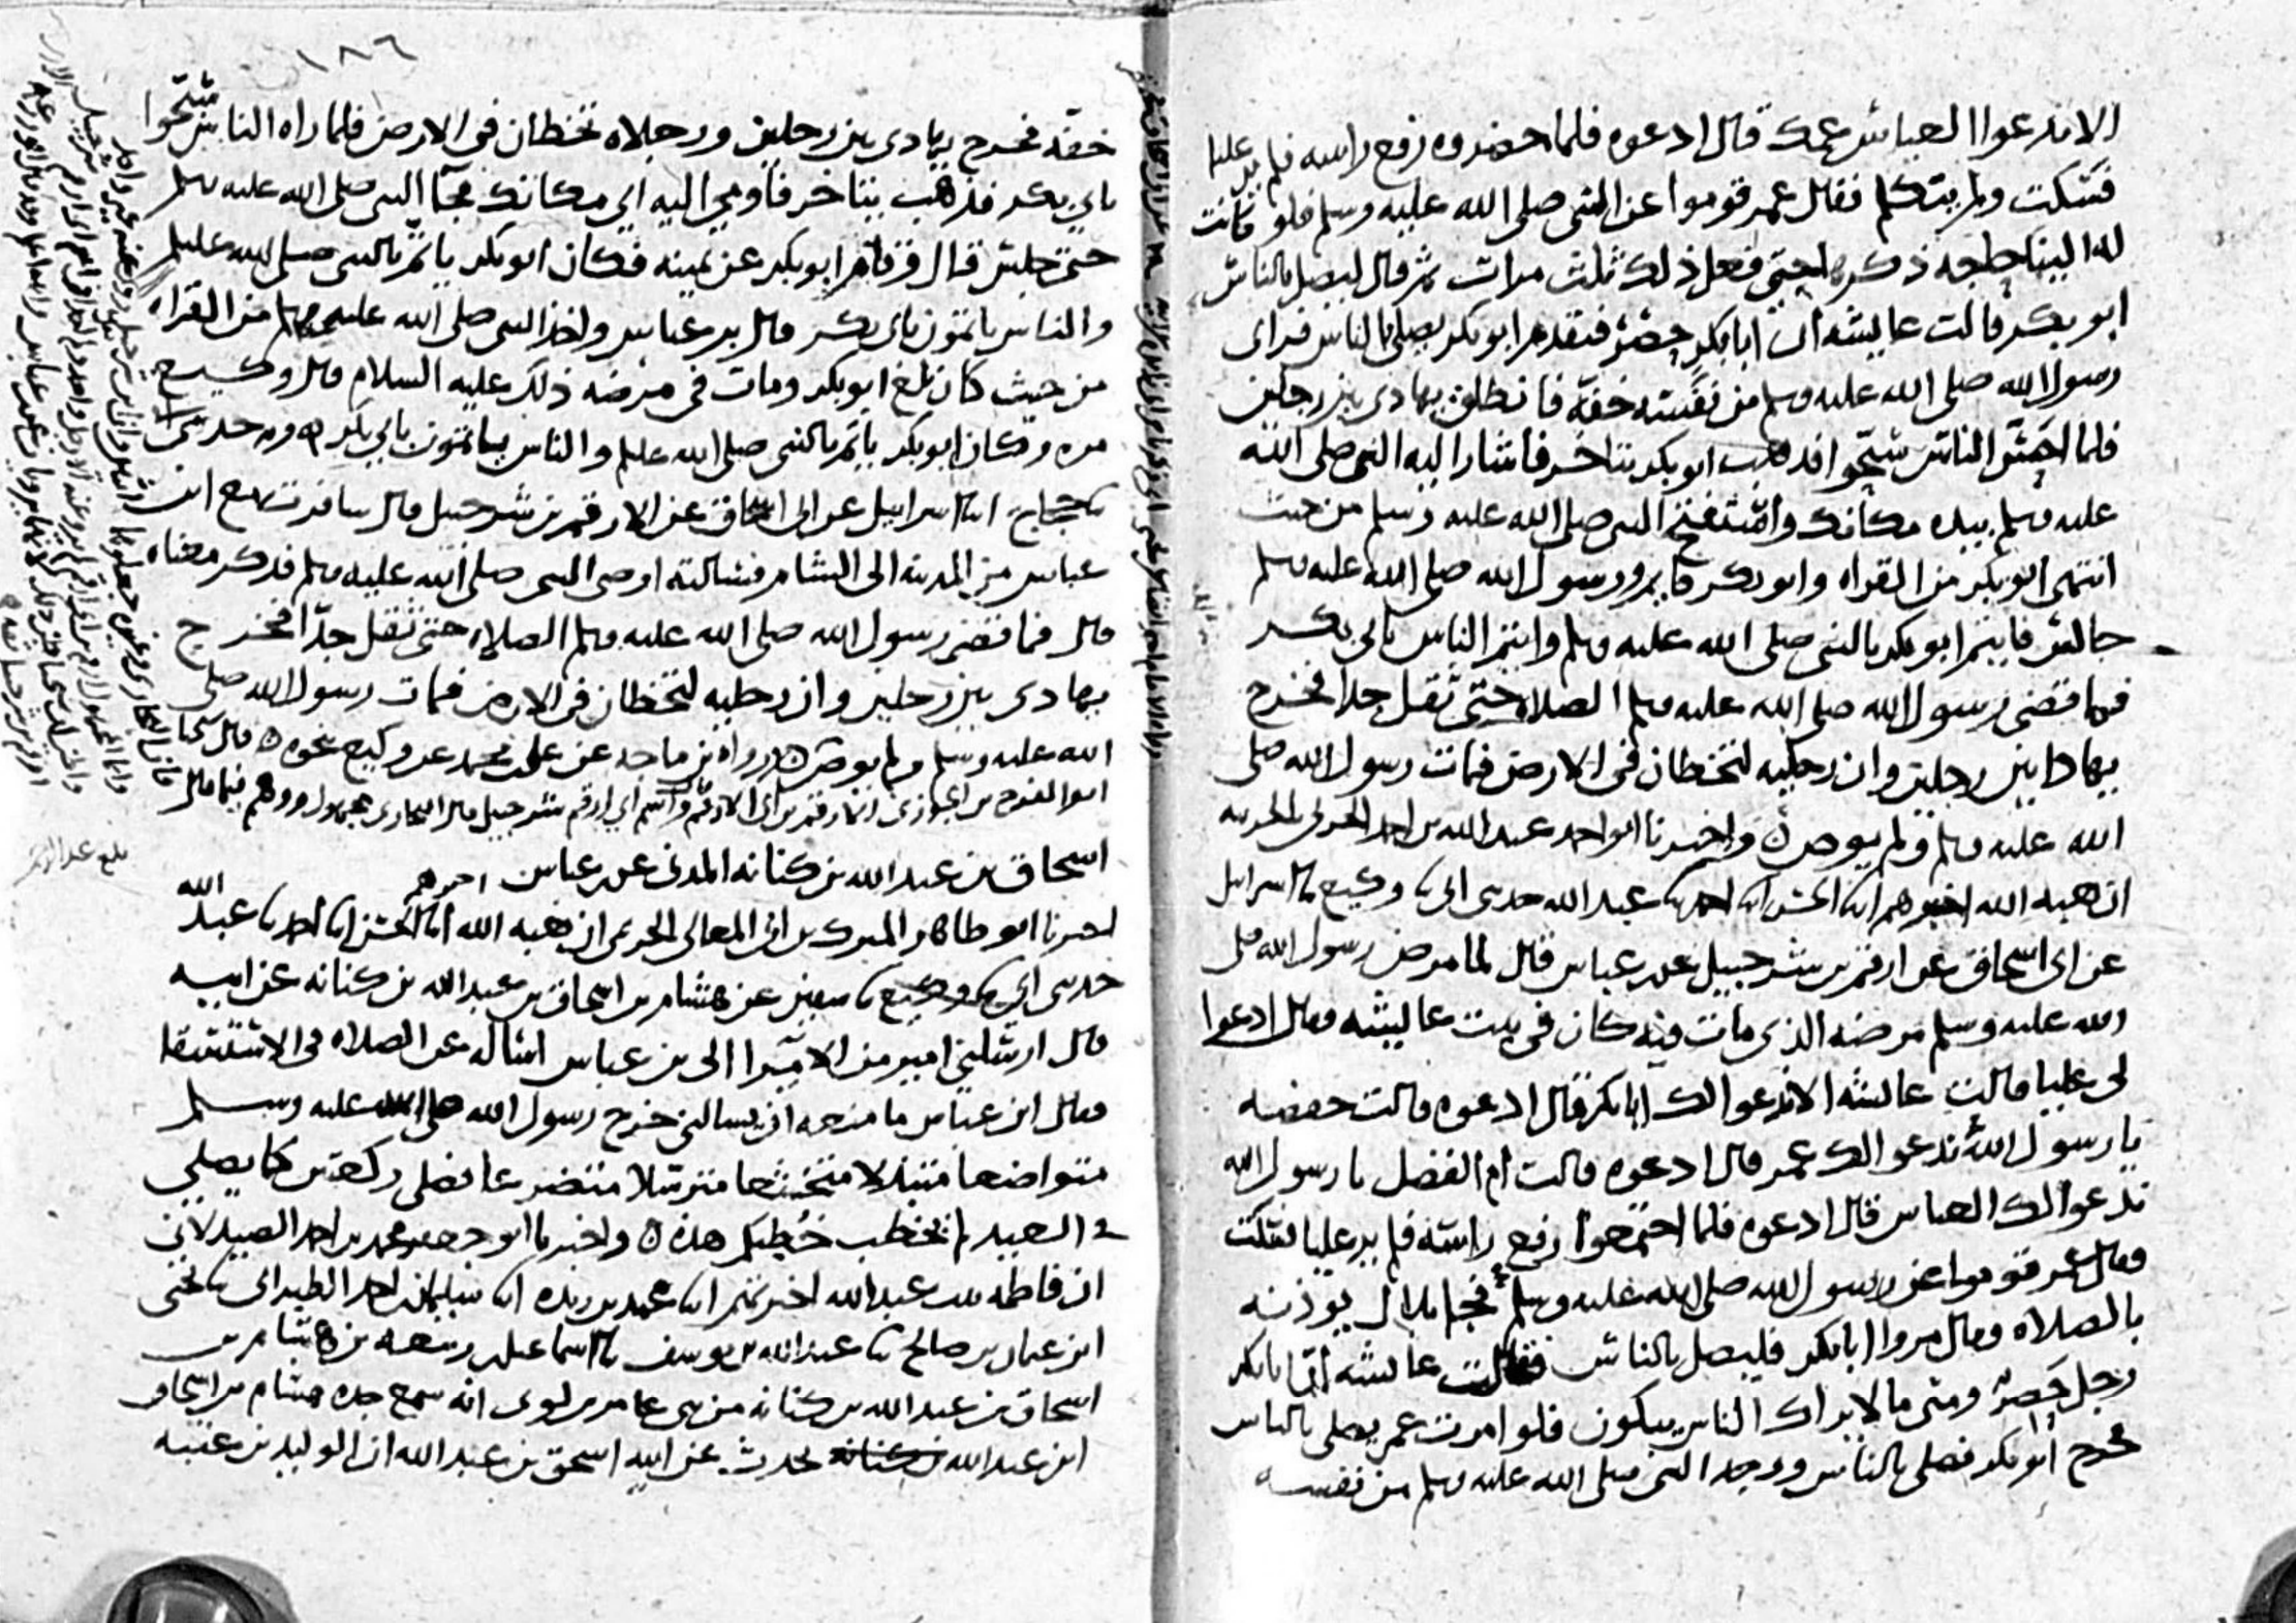 الا ندعوا العباس عمك قال ادعوه فلما احضروه رفع راسه فلم ير عليا
فسكت ولم يتكلم فقال عمر قوموا عن النبي صلى الله عليه وسلم فلو كانت
له الينا حاجه ذكرها حتى فعل ذلك ثلث مرات ثم قال ليصل بالناس
ابو بكر قالت عايشه ان ابا بكر حصر فتقدم ابو بكر يصلي بالناس فراى
رسول الله صلى الله عليه وسلم من نفسه خفة فانطلق يهادى بين رجلين
فلما احس الناس سبحوا فذهب ابو بكر يتاخر فاشار اليه النبي صلى الله
عليه وسلم بيده مكانك واستفتح النبي صلى الله عليه وسلم من حيث
انتهى ابو بكر من القراه وابو بكر قايم ورسول الله صلى الله عليه وسلم
جالس فايتم ابو بكر بالنبي صلى الله عليه وسلم وايتم الناس بابي بكر
فما قضى رسول الله صلى الله عليه وسلم الصلاه حتى ثقل جدا فخرج
يهادا بين رجلين وان رجليه لتخطان في الارض فمات رسول الله صلى
الله عليه وسلم ولم يوص واخبرنا ابو احمد عبد الله بن احمد الحربي بالحربيه
ان هبه الله اخبرهم ابنا الحسن ابنا احمد ثنا عبد الله حدثني ابي ثنا وكيع ثنا اسرائيل
عن ابي اسحاق عن ارقم بن شرحبيل عن بن عباس قال لما مرض رسول الله صلى
الله عليه وسلم مرضه الذي مات فيه كان في بيت عايشه فقال ادعوا
لي عليا قالت عايشه الا ندعوا لك ابا بكر قال ادعوه قالت حفصه
يا رسول الله ندعوا لك عمر قال ادعوه قالت ام الفضل يا رسول الله
ندعوا لك العباس قال ادعوه فلما اجتمعوا رفع راسه فلم ير عليا فسكت
فقال عمر قوموا عن رسول الله صلى الله عليه وسلم فجا بلال يوذنه
بالصلاه فقال مروا ابا بكر فليصل بالناس فقالت عايشه ان ابا بكر
رجل حصر ومتى ما لا يراك الناس يبكون فلو امرت عمر يصلي بالناس
فخرج ابو بكر فصلى بالناس ووجد النبي صلى الله عليه وسلم من نفسه
١٨٦
خفة فخرج يهادى بين رجلين ورجلاه تخطان في الارض فلما راه الناس سبحوا
بابي بكر فذهب يتاخر فاومي اليه اي مكانك فجا النبي صلى الله عليه وسلم
حتى جلس قال وقام ابو بكر عن يمينه فكان ابو بكر ياتم بالنبي صلى الله عليه وسلم
والناس ياتمون بابي بكر قال بن عباس واخذ النبي صلى الله عليه وسلم من القراه
من حيث كان بلغ ابو بكر ومات في مرضه ذلك عليه السلام قال وكيع
مره وكان ابو بكر ياتم بالنبي صلى الله عليه وسلم والناس ياتمون بابي بكر وبه حدثني ابي
ثنا حجاج ابنا اسرائيل عن ابي اسحاق عن الارقم بن شرحبيل قال سافرت مع ابن
عباس من المدينه الى الشام فسالته اوصى النبي صلى الله عليه وسلم فذكر معناه
قال فما قضى رسول الله صلى الله عليه وسلم الصلاه حتى ثقل جدا فخرج
يهادى بين رجلين وان رجليه لتخطان في الارض فمات رسول الله صلى
الله عليه وسلم ولم يوص رواه بن ماجه عن علي بن محمد عن وكيع نحوه قال شيخنا
ابو الفرج بن الجوزي ارقم بن ابي الارقم واسم ابي ارقم شرحبيل قال البخاري مجهول ووهم فيما قال
اسحاق بن عبد الله بن كنانه المدني عن بن عباس
اخبرنا ابو طاهر المبرك بن ابي المعالي الحريمي ان هبه الله اخبرهم ابنا الحسن ابنا احمد ثنا عبد الله
حدثني ابي ثنا وكيع ثنا سفين عن هشام بن اسحاق بن عبد الله بن كنانه عن ابيه
قال ارسلني امير من الامرا الى بن عباس اساله عن الصلاه في الاستسقا
فقال ابن عباس ما منعه ان يسالني خرج رسول الله صلى الله عليه وسلم
متواضعا متبذلا متخشعا مترسلا متضرعا فصلى ركعتين كما يصلي
في العيد لم يخطب خطبكم هذه واخبرنا ابو جعفر محمد بن احمد الصيدلاني
ان فاطمه بنت عبد الله اخبرتهم ابنا محمد بن ريذه ابنا سليمان بن احمد الطبراني ثنا يحيى
ابن عثمان بن صالح ثنا عبد الله بن يوسف ثنا اسماعيل بن ربيعه بن هشام بن
اسحاق بن عبد الله بن كنانه من بني عامر بن لوي انه سمع جده هشام بن اسحاق
ابن عبد الله بن كنانه يحدث عن ابيه اسحق بن عبد الله ان الوليد بن عتبه